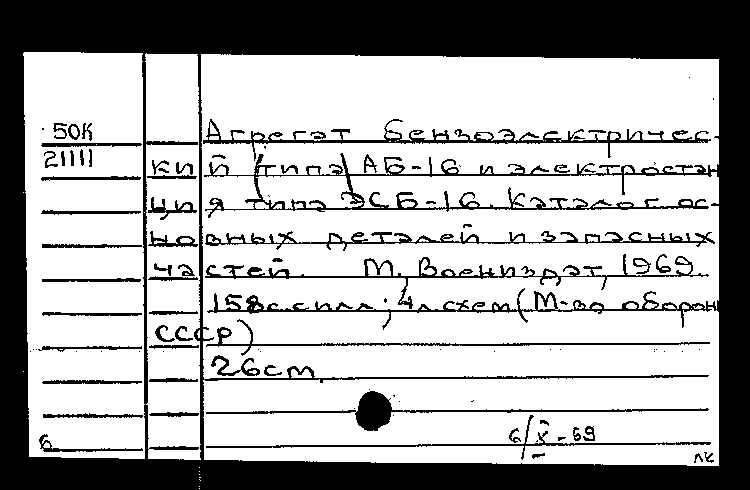 50К
21111
Агрегат бензоэлектричес-
кий (типа) АБ-16 и электростан
ция типа ЭСБ-16. Каталог ос-
новных деталей и запасных
частей. М., Воениздат, 1969.
158с с илл; 4л схем (М-во оборон
СССР)
26см.
Б
6/X-69
ЛК